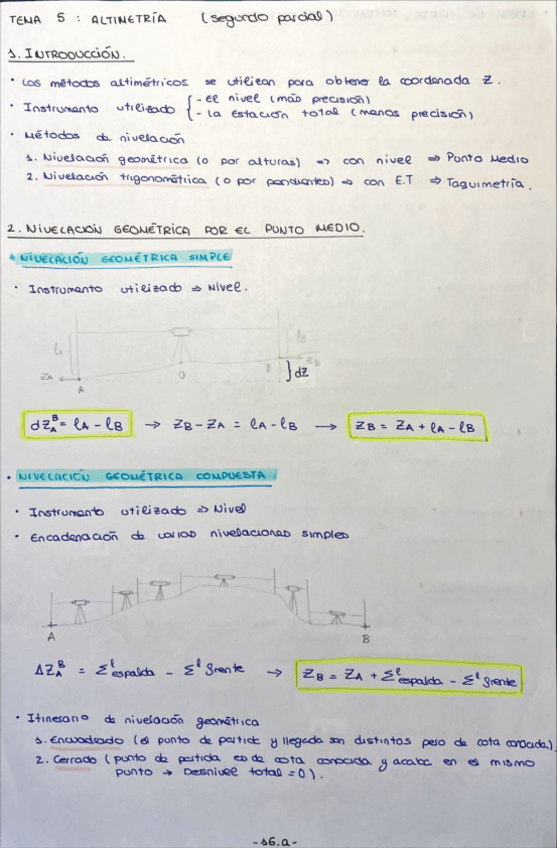 TEMA 5 : ALTIMETRÍA (segundo parcial)
1. INTRODUCCIÓN.
· Los métodos altimétricos se utilizan para obtener la coordenada Z.
· Instrumento utilizado { - el nivel (más precisión)
- la estación total (menos precisión)
· Métodos de nivelación
1. Nivelación geométrica (o por alturas) ⇒ con nivel ⇒ Punto Medio
2. Nivelación trigonométrica (o por pendientes) ⇒ con E.T ⇒ Taquimetría.
2. NIVELACIÓN GEOMÉTRICA POR EL PUNTO MEDIO.
* NIVELACIÓN GEOMÉTRICA SIMPLE
· Instrumento utilizado ⇒ Nivel.
lA lB
ZA A O B ZB } dZ
dZ_A^B = lA - lB → ZB - ZA = lA - lB → ZB = ZA + lA - lB
· NIVELACIÓN GEOMÉTRICA COMPUESTA
· Instrumento utilizado ⇒ Nivel
· Encadenación de varios nivelaciones simples
A B
ΔZ_A^B = Σl espalda - Σl frente → ZB = ZA + Σl espalda - Σl frente
· Itinerario de nivelación geométrica
1. Encuadrado (el punto de partida y llegada son distintos pero de cota conocida).
2. Cerrado (punto de partida es de cota conocida y acaba en el mismo
punto → Desnivel total = 0).
-16.a-